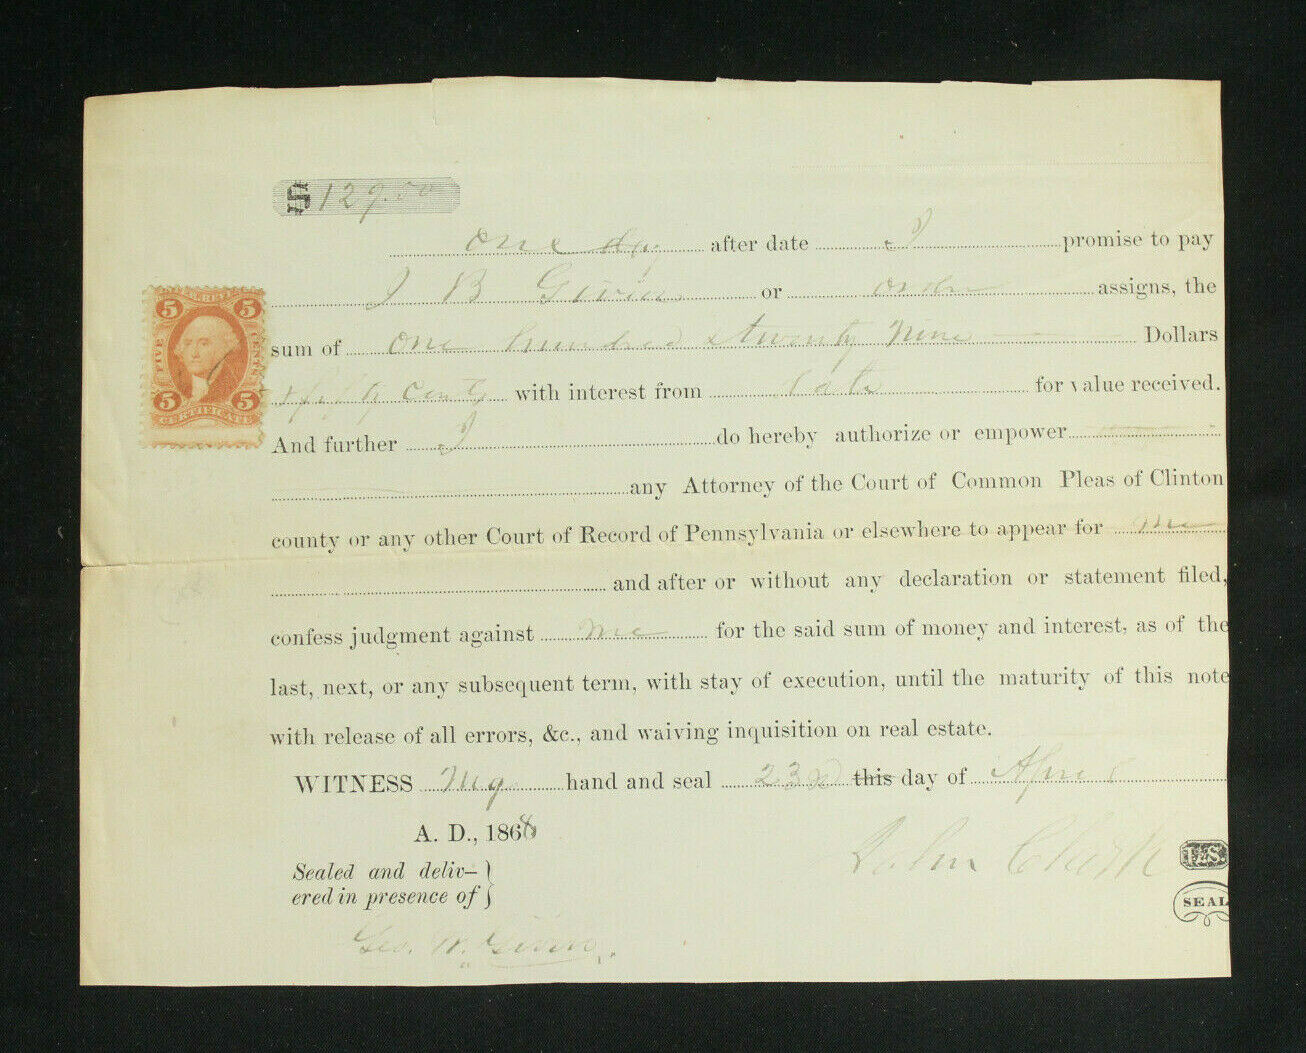 $129.50
one day after date I promise to pay
J B Givin or order assigns, the
sum of one hundred & twenty nine Dollars
& fifty cents with interest from date for value received.
And further I do hereby authorize or empower
any Attorney of the Court of Common Pleas of Clinton
county or any other Court of Record of Pennsylvania or elsewhere to appear for me
and after or without any declaration or statement filed,
confess judgment against me for the said sum of money and interest, as of the
last, next, or any subsequent term, with stay of execution, until the maturity of this note
with release of all errors, &c., and waiving inquisition on real estate.
WITNESS My hand and seal 23rd this day of April
A. D., 186
John Clark L.S.
Sealed and deliv-
ered in presence of
SEAL
Geo. W. Givin
5 5
FIVE CENTS
5 5
CERTIFICATE